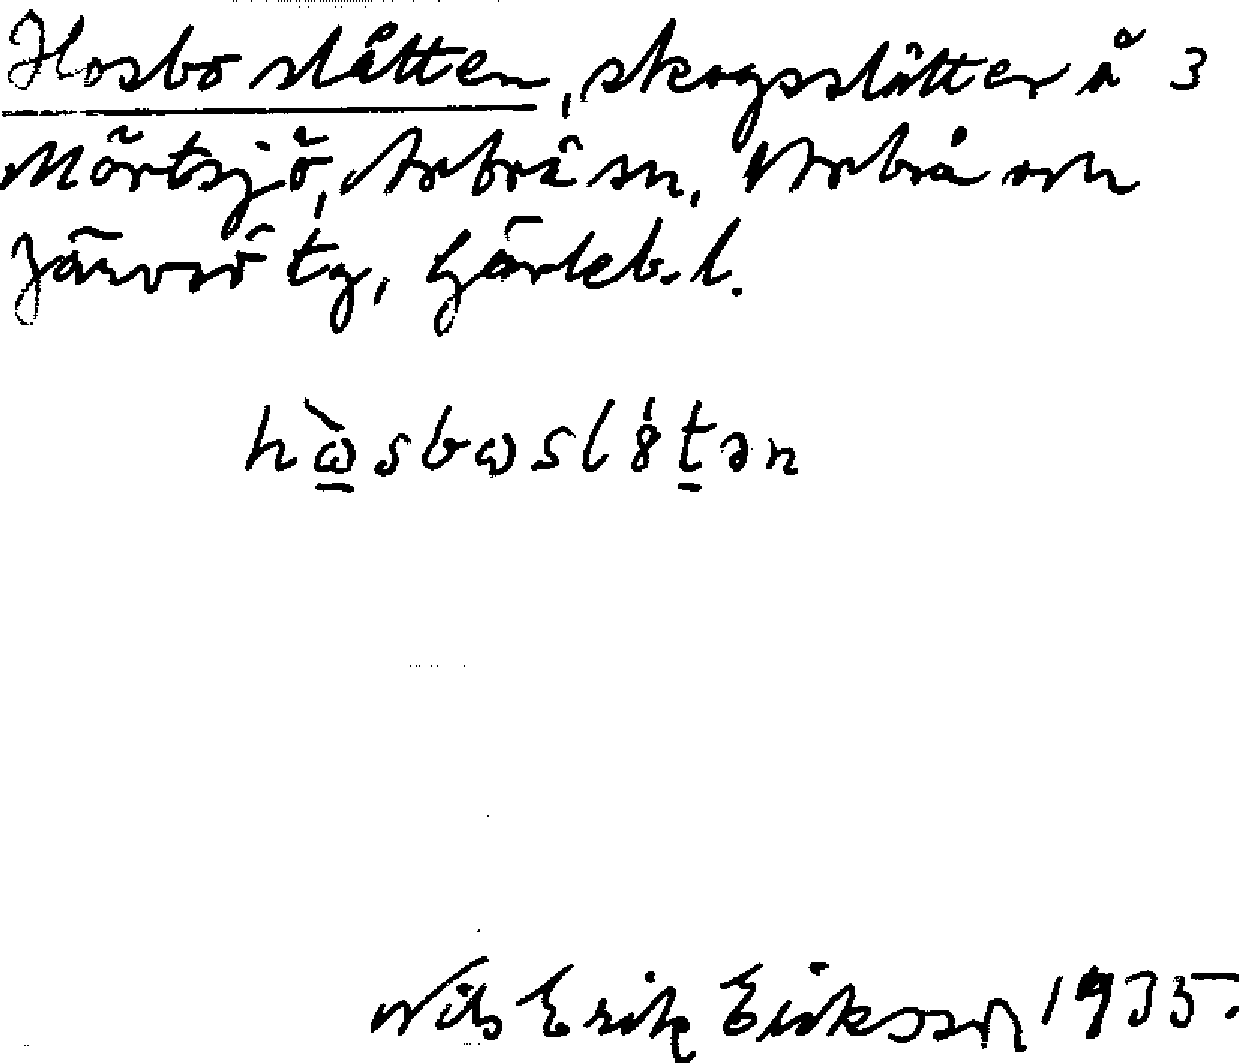 Hosboslåtten, skogsslåtter å 3
Mörtsjö, Arbrå sn, Arbrå och
Järvsö tg, Gävleb. l.
hὼ̱sbωslȣ́t̠ən
Nils Erik Eriksson 1935.